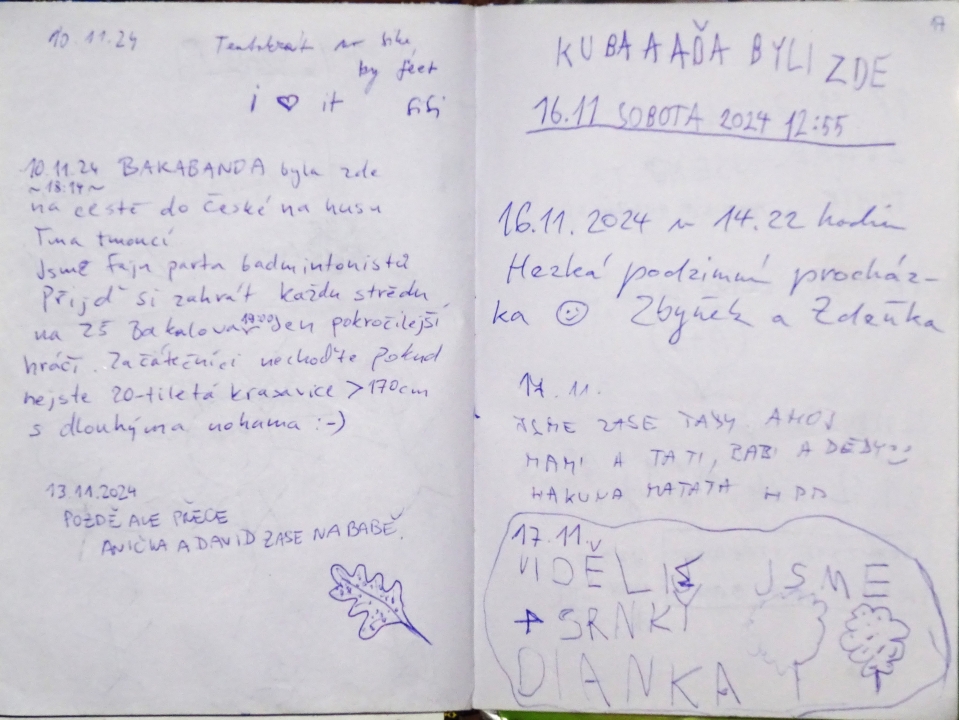 10.11.24
Tentokrát no bike,
by feet
i ♡ it
10.11.24 BAKABANDA byla zde
~18:14~
na cestě do České na husu
Tma tmoucí
Jsme fajn parta badmintonistů
Přijď si zahrát každu středu
na ZŠ Bakalova 19:00 Jen pokročilejší
hráči. Začátečníci nechoďte pokud
nejste 20-tiletá krasavice >170cm
s dlouhýma nohama :-)
13.11.2024
POZDĚ ALE PŘECE
ANIČKA A DAVID ZASE NA BABĚ.
17
KUBA A AĎA BYLI ZDE
16.11 SOBOTA 2024 12:55
16.11.2024 v 14.22 hodin
Hezká podzimní procház-
ka ☺ Zbyněk a Zdeňka
17.11.
JSME ZASE TADY AHOJ
MAMI A TATI, BABI A DĚDY
HAKUNA MATATA
17.11.
VIDĚLI JSME
+ SRNKY
DIANKA